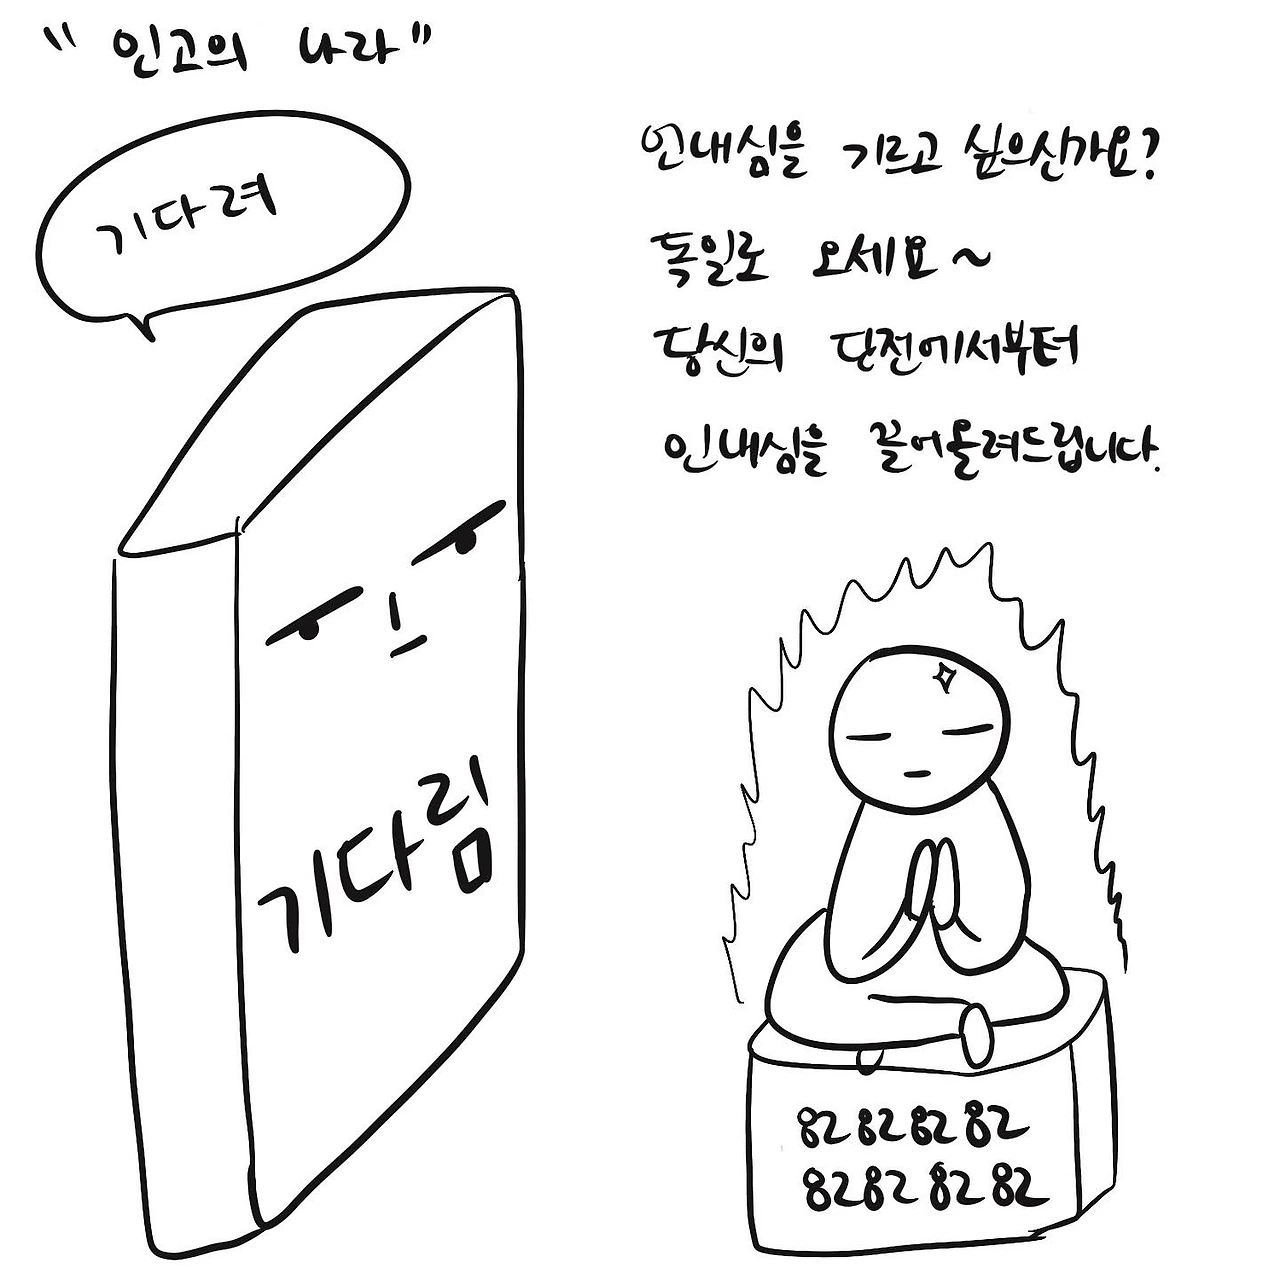 "인고의 나라"
기다려
기다림
인내심을 기르고 싶으신가요?
독일로 오세요~
당신의 단전에서부터
인내심을 끌어올려드립니다.
82 82 82 82
82 82 82 82